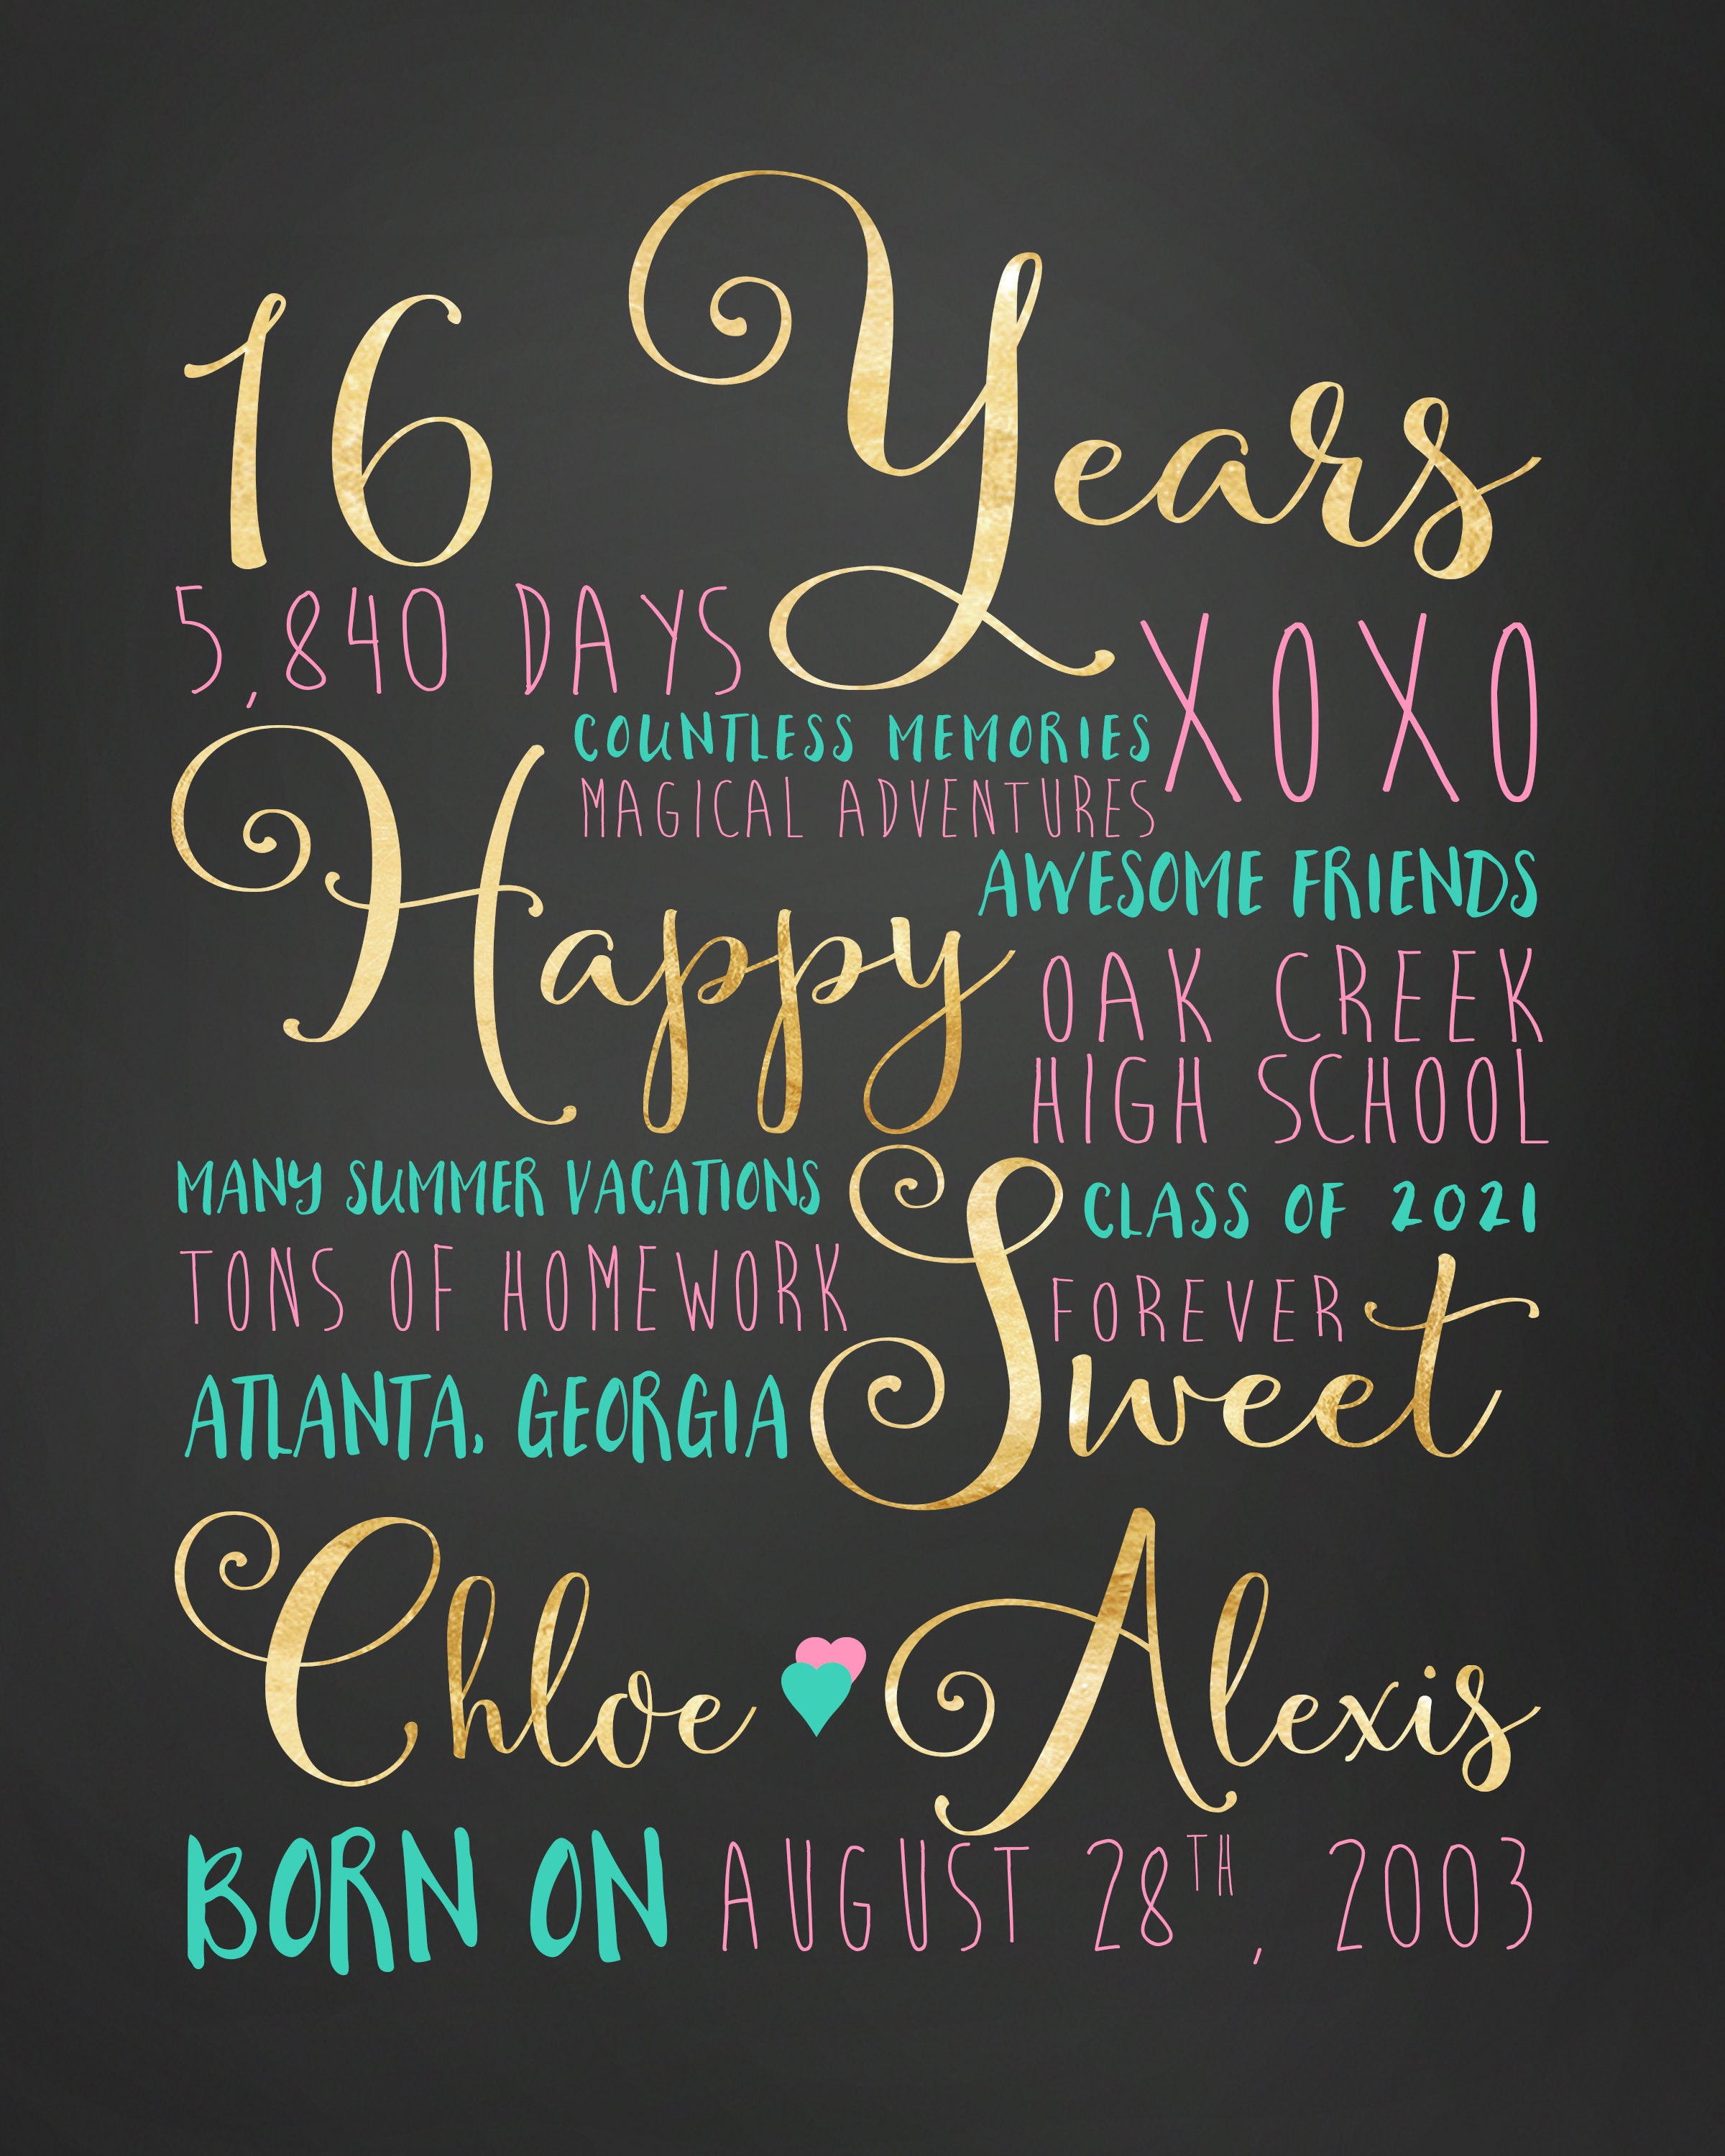 16 Years
5,840 DAYS
XOXO
COUNTLESS MEMORIES
MAGICAL ADVENTURES
Happy
AWESOME FRIENDS
OAK CREEK
HIGH SCHOOL
MANY SUMMER VACATIONS
TONS OF HOMEWORK
ATLANTA, GEORGIA
CLASS OF 2021
FOREVER
Sweet
Chloe Alexis
BORN ON AUGUST 28TH, 2003